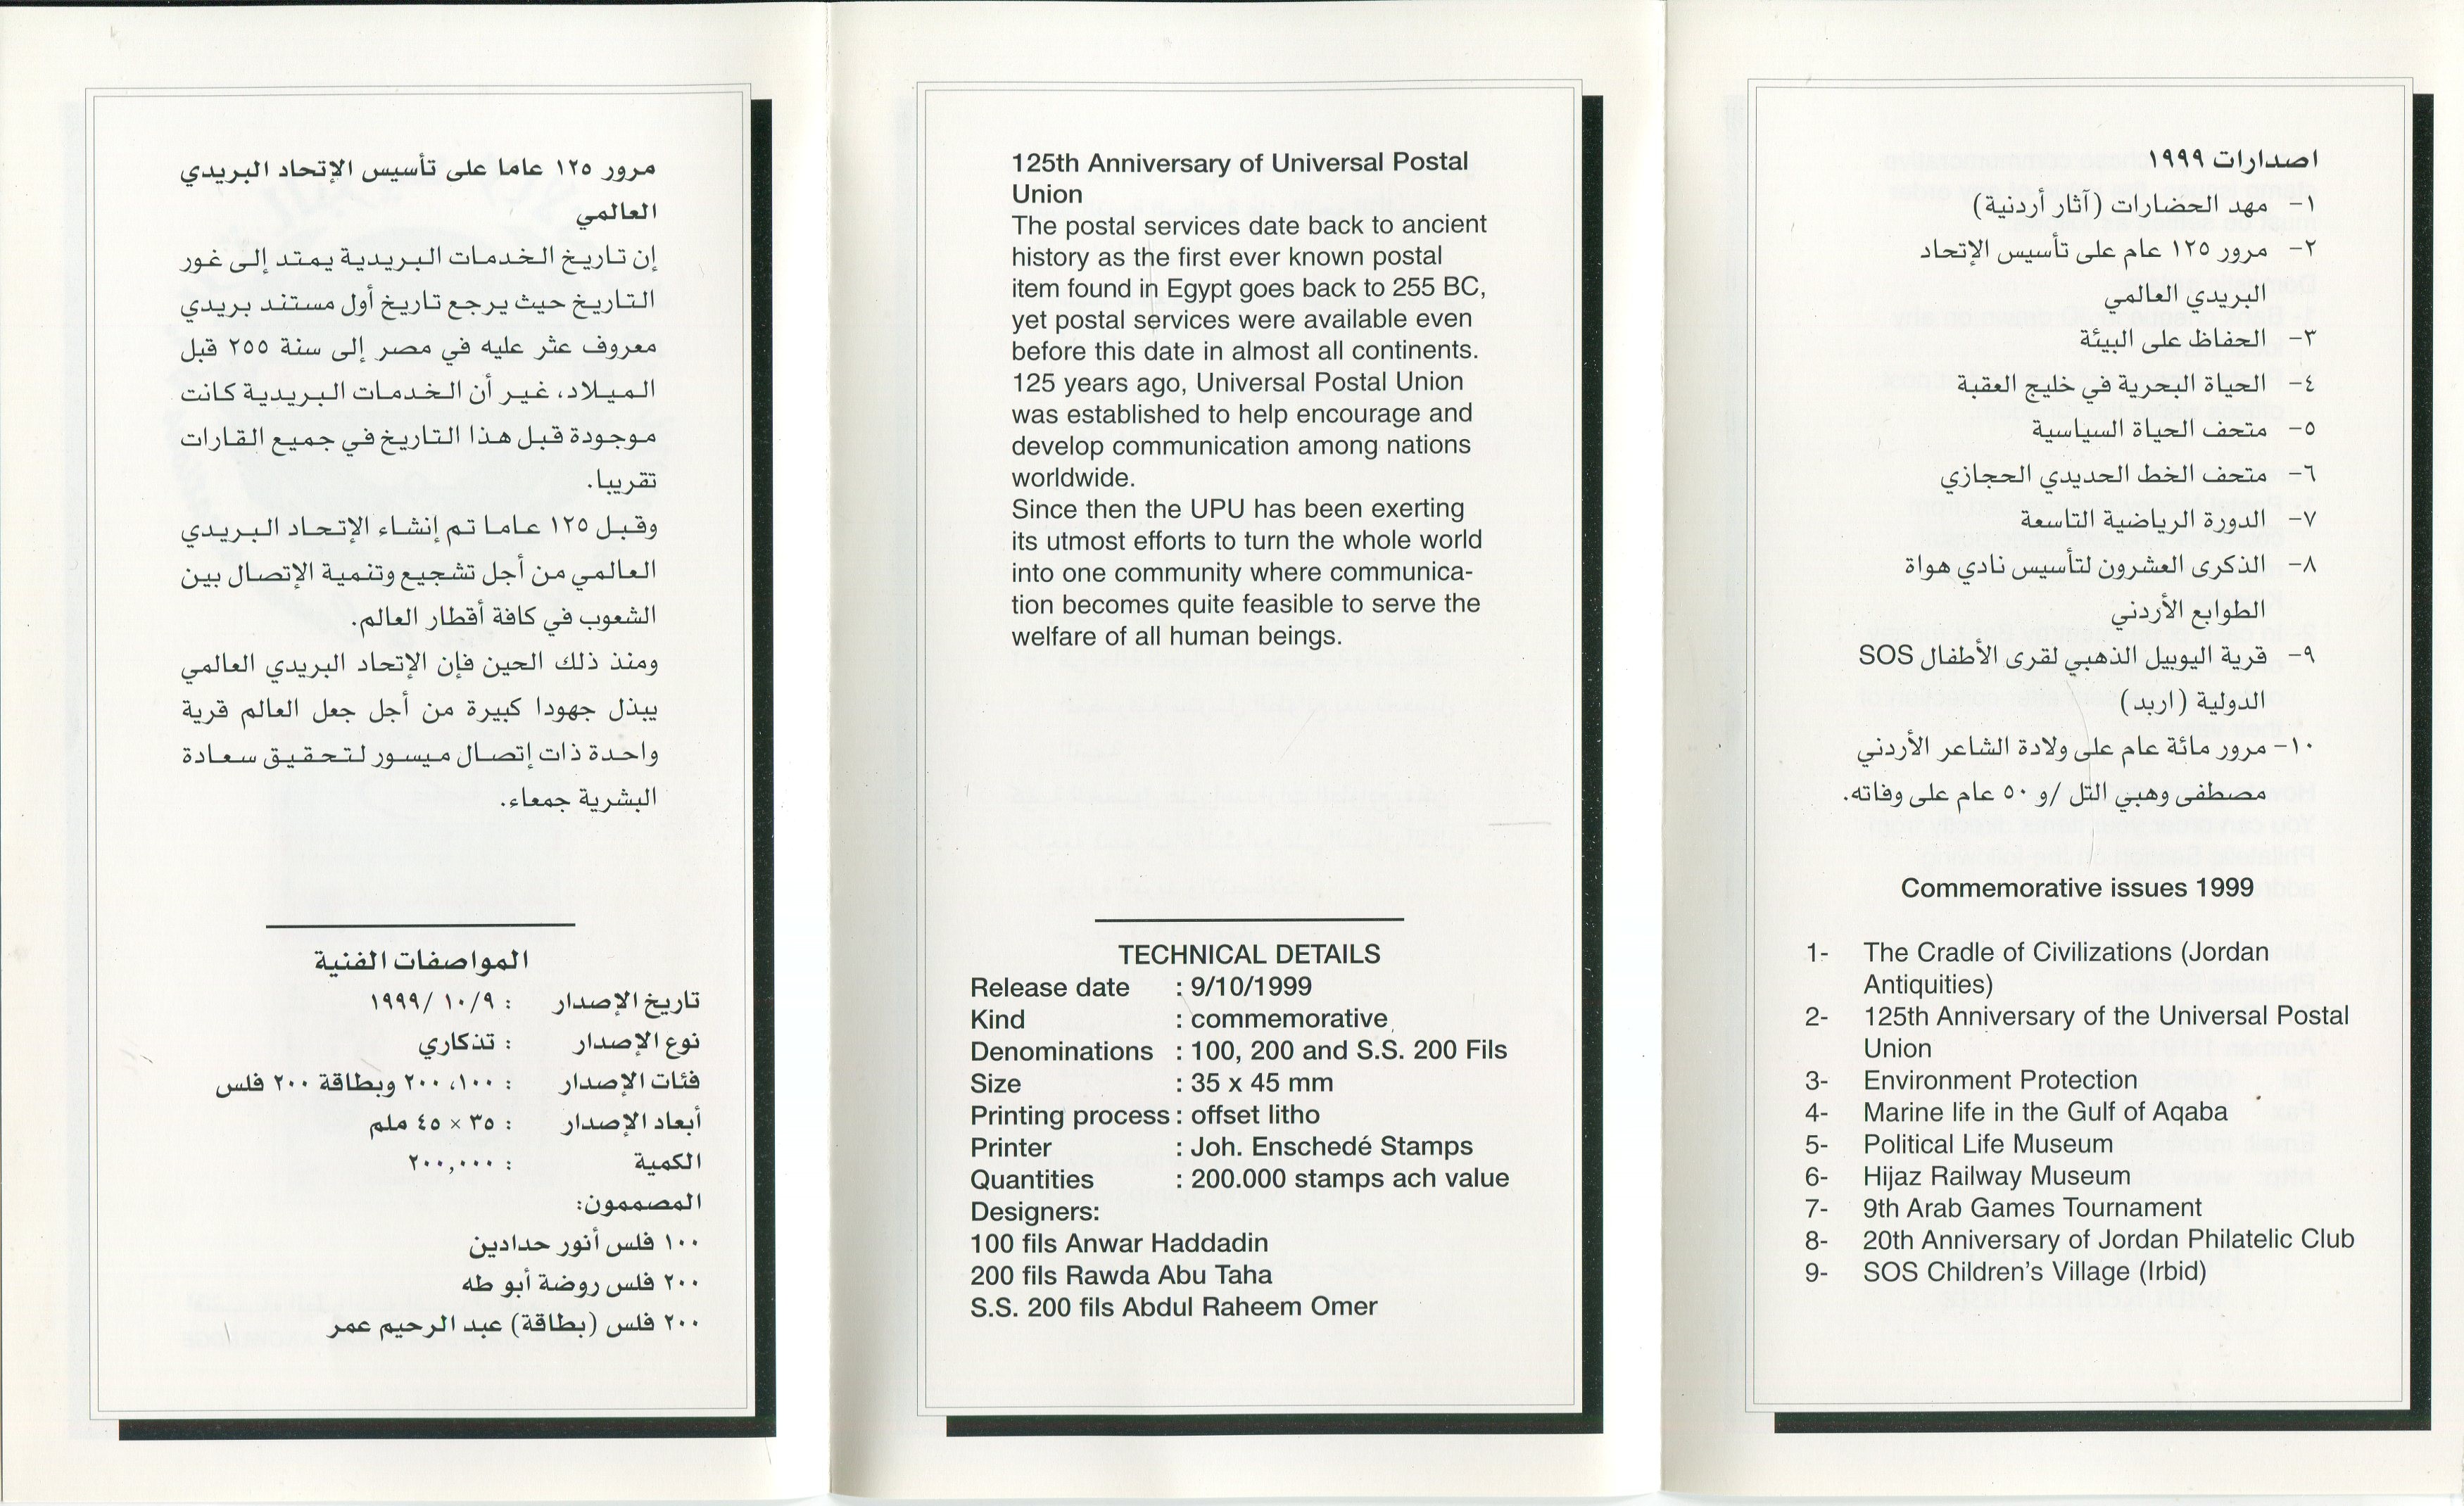 مرور ١٢٥ عاما على تأسيس الإتحاد البريدي
العالمي
إن تاريخ الخدمات البريدية يمتد إلى غور
التاريخ حيث يرجع تاريخ أول مستند بريدي
معروف عثر عليه في مصر إلى سنة ٢٥٥ قبل
الميلاد، غير أن الخدمات البريدية كانت
موجودة قبل هذا التاريخ في جميع القارات
تقريبا.
وقبل ١٢٥ عاما تم إنشاء الإتحاد البريدي
العالمي من أجل تشجيع وتنمية الإتصال بين
الشعوب في كافة أقطار العالم.
ومنذ ذلك الحين فإن الإتحاد البريدي العالمي
يبذل جهودا كبيرة من أجل جعل العالم قرية
واحدة ذات إتصال ميسور لتحقيق سعادة
البشرية جمعاء.
المواصفات الفنية
تاريخ الإصدار : ١٩٩٩/ ١٠/٩
نوع الإصدار : تذكاري
فئات الإصدار : ١٠٠، ٢٠٠ وبطاقة ٢٠٠ فلس
أبعاد الإصدار : ٣٥ × ٤٥ ملم
الكمية : ٢٠٠,٠٠٠
المصممون:
١٠٠ فلس أنور حدادين
٢٠٠ فلس روضة أبو طه
٢٠٠ فلس (بطاقة) عبد الرحيم عمر
125th Anniversary of Universal Postal
Union
The postal services date back to ancient
history as the first ever known postal
item found in Egypt goes back to 255 BC,
yet postal services were available even
before this date in almost all continents.
125 years ago, Universal Postal Union
was established to help encourage and
develop communication among nations
worldwide.
Since then the UPU has been exerting
its utmost efforts to turn the whole world
into one community where communica-
tion becomes quite feasible to serve the
welfare of all human beings.
TECHNICAL DETAILS
Release date : 9/10/1999
Kind : commemorative
Denominations : 100, 200 and S.S. 200 Fils
Size : 35 x 45 mm
Printing process : offset litho
Printer : Joh. Enschedé Stamps
Quantities : 200.000 stamps ach value
Designers:
100 fils Anwar Haddadin
200 fils Rawda Abu Taha
S.S. 200 fils Abdul Raheem Omer
اصدارات ١٩٩٩
١- مهد الحضارات (آثار أردنية)
٢- مرور ١٢٥ عام على تأسيس الإتحاد
البريدي العالمي
٣- الحفاظ على البيئة
٤- الحياة البحرية في خليج العقبة
٥- متحف الحياة السياسية
٦- متحف الخط الحديدي الحجازي
٧- الدورة الرياضية التاسعة
٨- الذكرى العشرون لتأسيس نادي هواة
الطوابع الأردني
٩- قرية اليوبيل الذهبي لقرى الأطفال SOS
الدولية (اربد)
١٠- مرور مائة عام على ولادة الشاعر الأردني
مصطفى وهبي التل /و ٥٠ عام على وفاته.
Commemorative issues 1999
1- The Cradle of Civilizations (Jordan
Antiquities)
2- 125th Anniversary of the Universal Postal
Union
3- Environment Protection
4- Marine life in the Gulf of Aqaba
5- Political Life Museum
6- Hijaz Railway Museum
7- 9th Arab Games Tournament
8- 20th Anniversary of Jordan Philatelic Club
9- SOS Children's Village (Irbid)